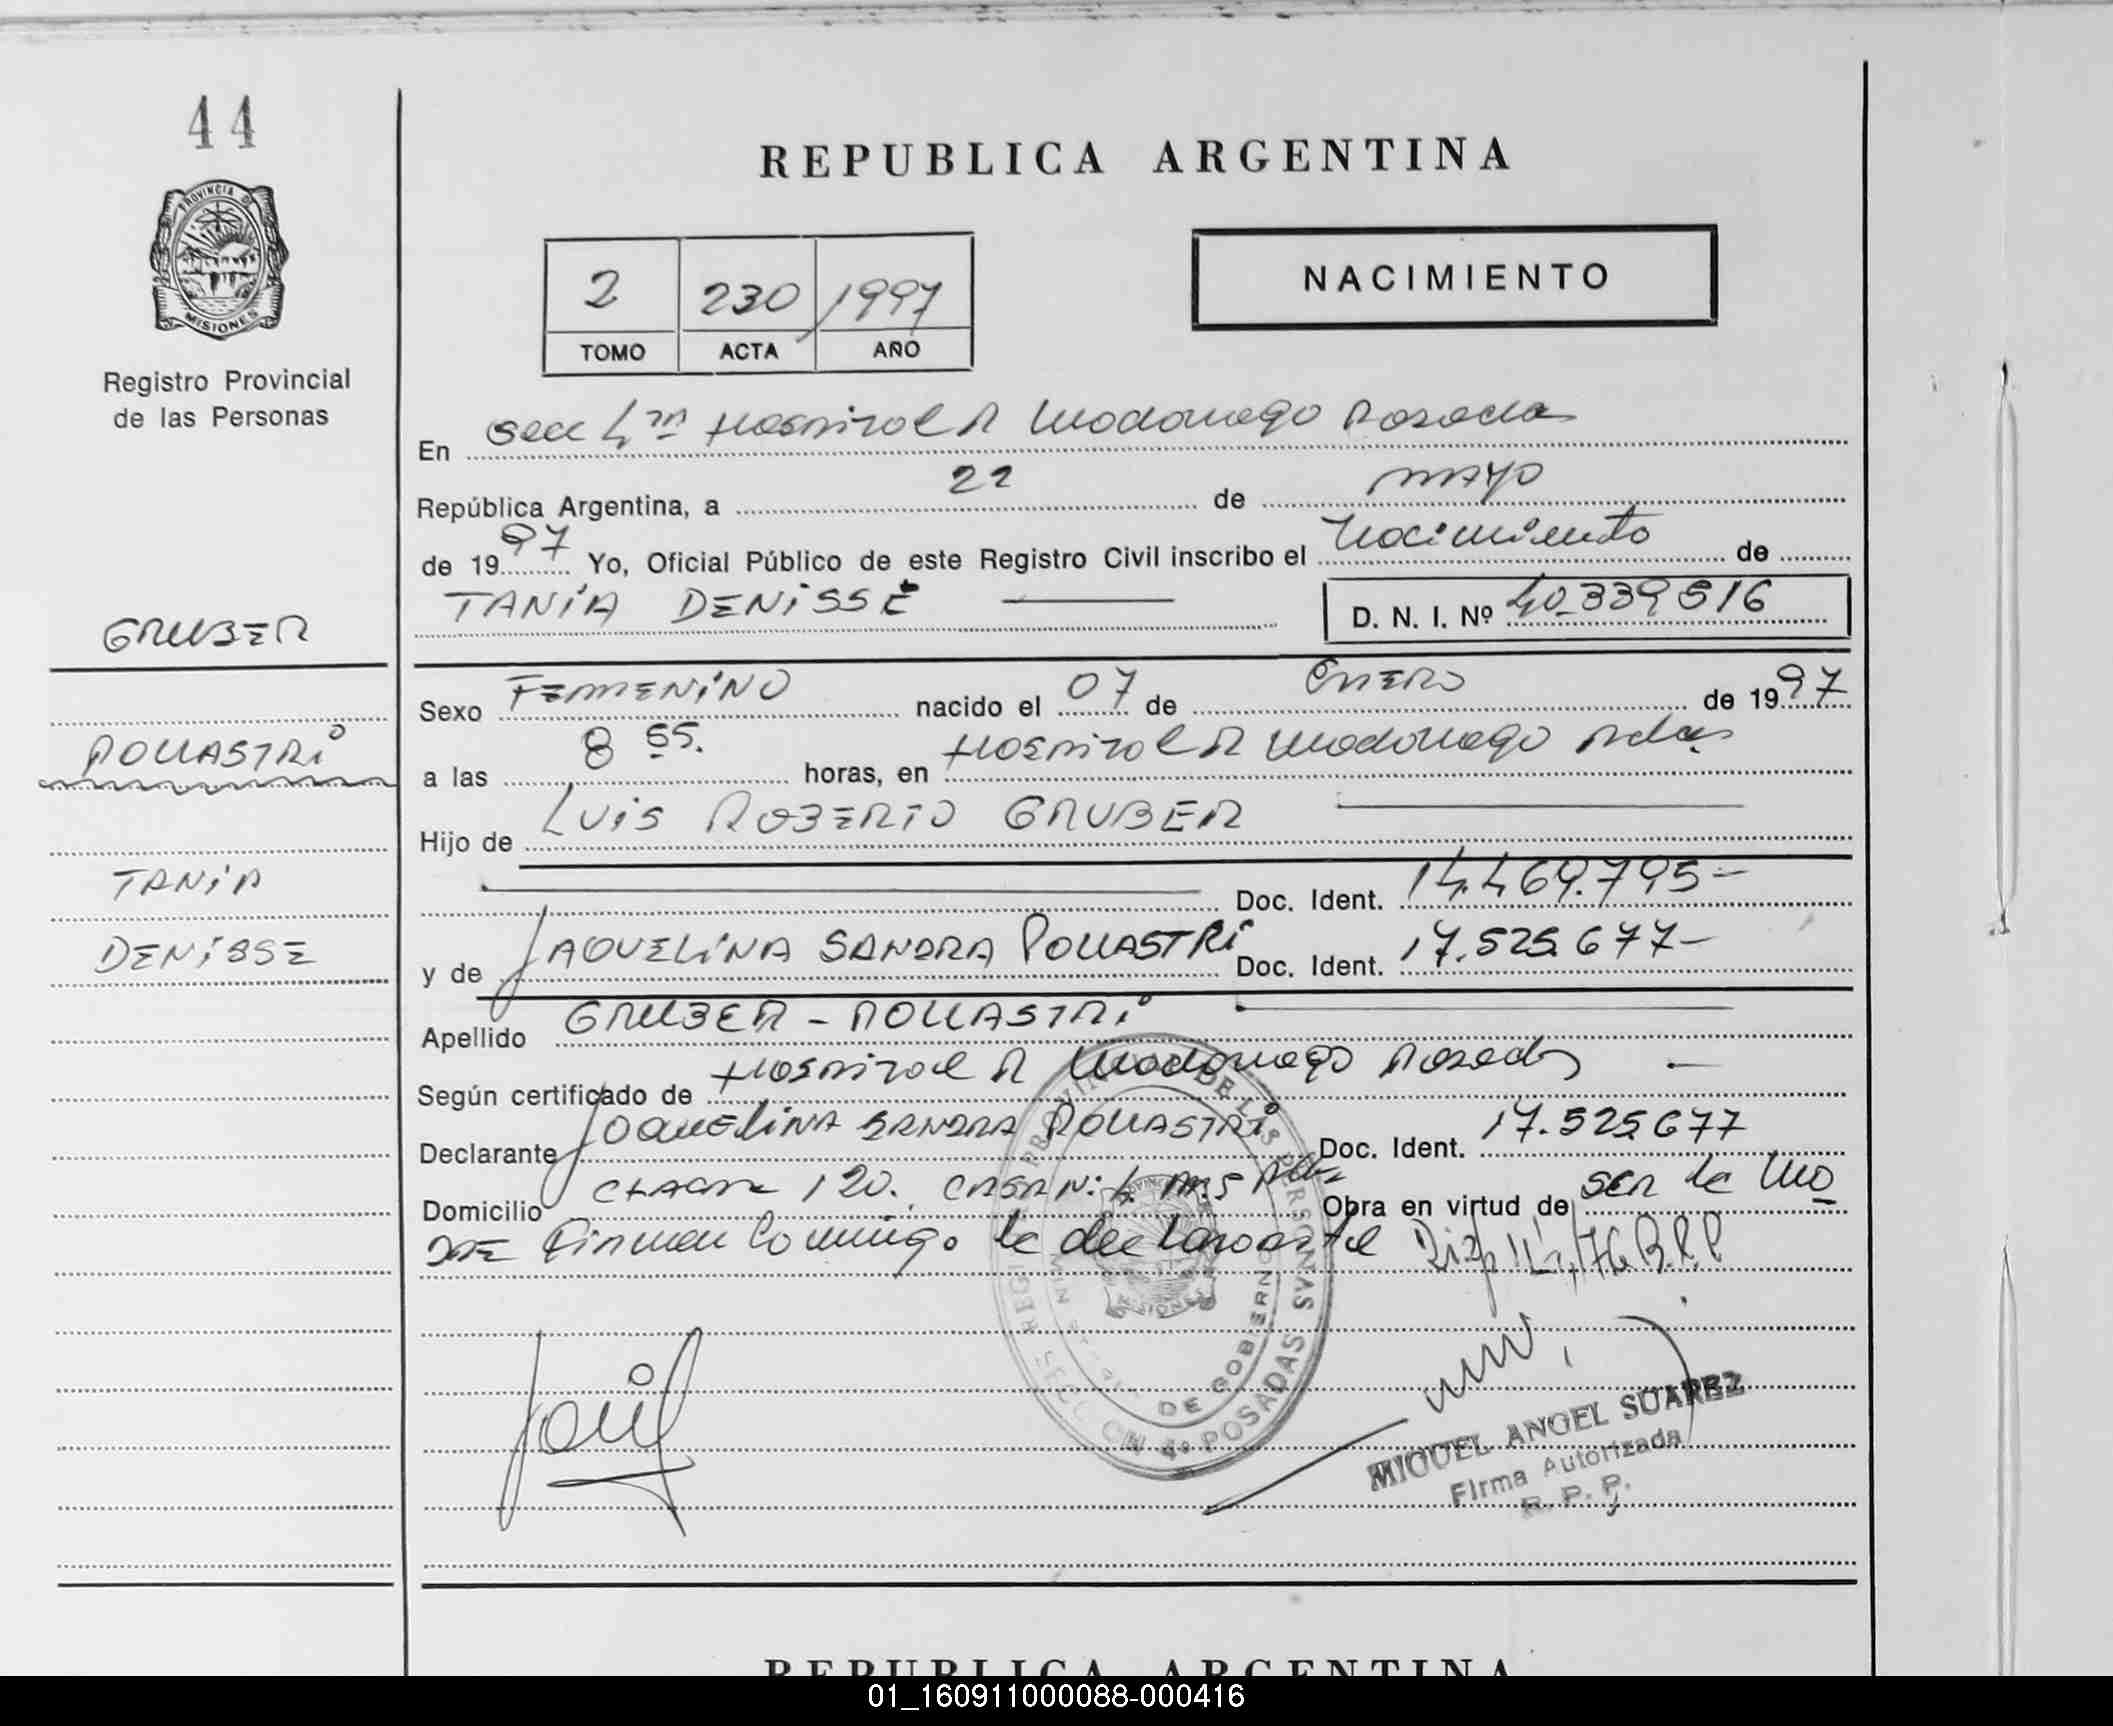 44
PROVINCIA DE
MISIONES
Registro Provincial
de las Personas
REPUBLICA ARGENTINA
2 230 1997
TOMO ACTA AÑO
NACIMIENTO
En Secc 4ta Hospital R Madariaga Posadas
República Argentina, a 22 de mayo
de 1997 Yo, Oficial Público de este Registro Civil inscribo el Nacimiento de
TANIA DENISSE
D. N. I. Nº 40.339516
GRUBER
POLLASTRI
TANIA
DENISSE
Sexo FEMMENINO nacido el 07 de ENERO de 1997
a las 8 55. horas, en Hospital R Madariaga Pdas
Hijo de LUIS ROBERTO GRUBER
Doc. Ident. 14.469.795-
y de JAQUELINA SANDRA POLLASTRI Doc. Ident. 17.525.677-
Apellido GRUBER - POLLASTRI
Según certificado de Hospital R Madariaga Posadas
Declarante JAQUELINA SANDRA POLLASTRI Doc. Ident. 17.525677
Domicilio CHACRA 120. CASA N: 4 Obra en virtud de SER la Ma
DRE Firman Conmigo la declarante Disp
REGISTRO PROVINCIAL DE LAS PERSONAS
DE GOBIERNO
SECCION 4º POSADAS
MIGUEL ANGEL SUAREZ
Firma Autorizada
R. P. P.
REPUBLICA ARGENTINA
01_160911000088-000416